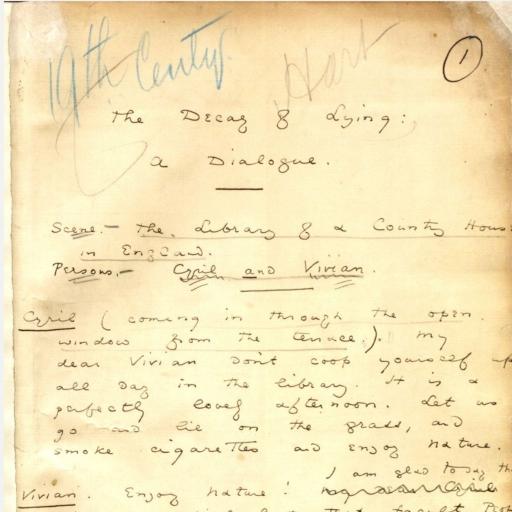 19th Century.
Hart
1
The Decay of Lying:
A Dialogue.
Scene.- The Library of a Country Hous
in England.
Persons.- Cyril and Vivian.
Cyril (coming in through the open
window from the terrace.). My
dear Vivian don't coop yourself up
all day in the library. It is a
perfectly lovely afternoon. Let us
go and lie on the grass, and
smoke cigarettes and enjoy nature.
I am glad to say th
Vivian. Enjoy nature!